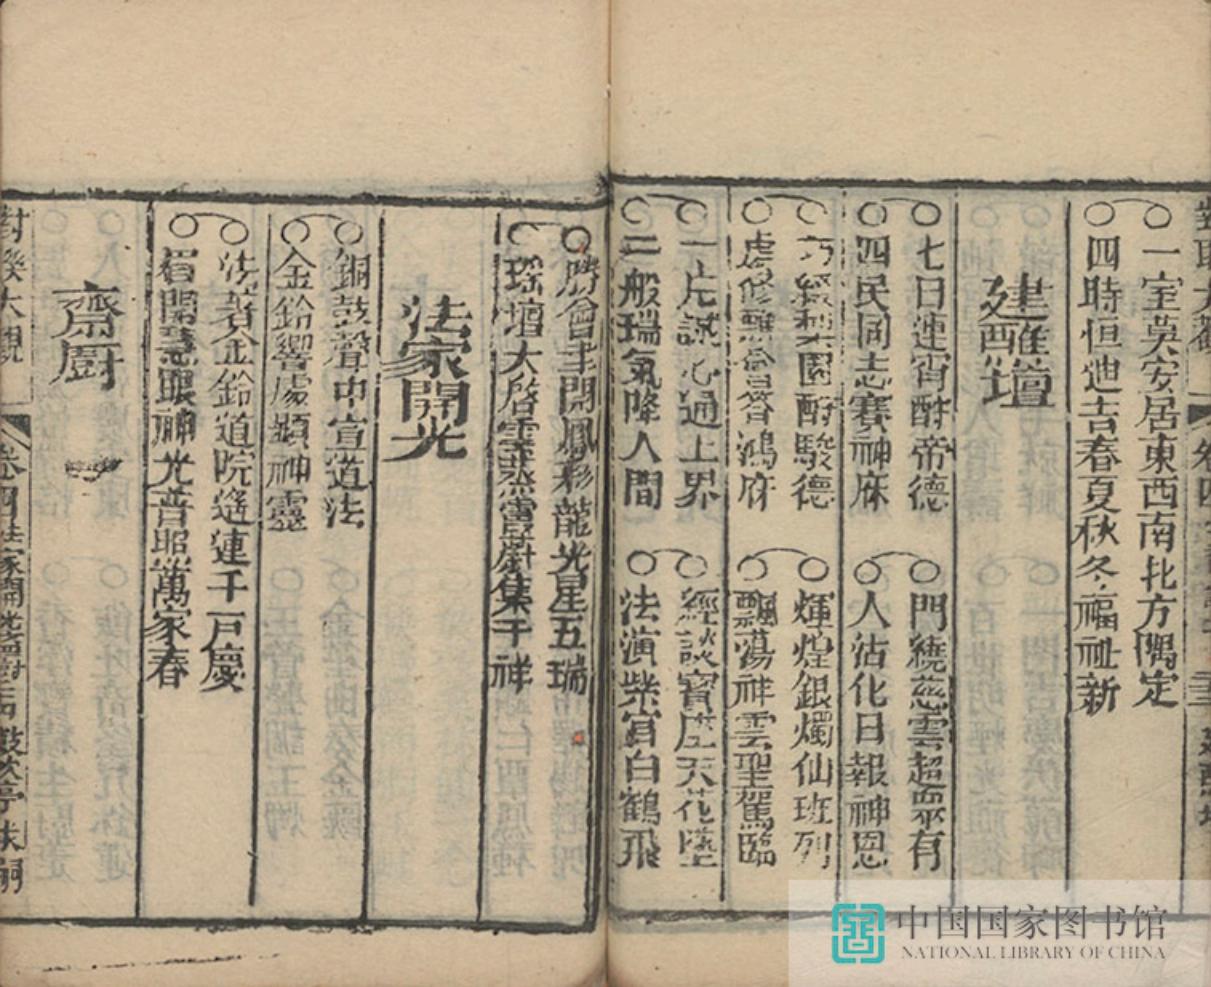 一室奠安居東西南北方隅定
四時恒迪吉春夏秋冬福祉新
建醮壇
七日連宵酧帝德
四民同志賽神庥
園酧駿德
虔修醮 鴻庥
一片誠心通上界
二般瑞氣降人間
門繞慈雲超 有
人沾化日報神恩
輝煌銀燭仙班列
飄蕩祥雲聖駕臨
經談寶座天花墜
法演柴宮白鶴飛
勝會 開鳳彩龍光呈五瑞
瑶壇大啓雲蒸霞蔚集千祥
法家開光
銅鼓聲中宣道法
金鈴響處顯神靈
法著金鈴道院遙連千戶慶
眉開慧眼神光普照萬家春
齋厨
卷四
中国国家图书馆
NATIONAL LIBRARY OF CHINA